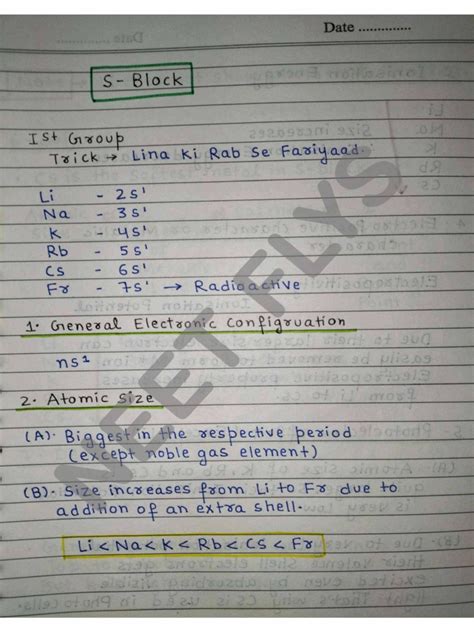 Date ..............
S- Block
Ist Group
Trick → Lina Ki Rab Se Fariyaad.
Li - 2s¹
Na - 3s¹
K - 4s¹
Rb - 5s¹
Cs - 6s¹
Fr - 7s¹ → Radioactive
1. General Electronic Configruation
ns¹
2. Atomic Size
(A). Biggest in the respective period
(except noble gas element)
(B). Size increases from Li to Fr due to
addition of an extra shell.
Li < Na < K < Rb < Cs < Fr
NEET FLYS